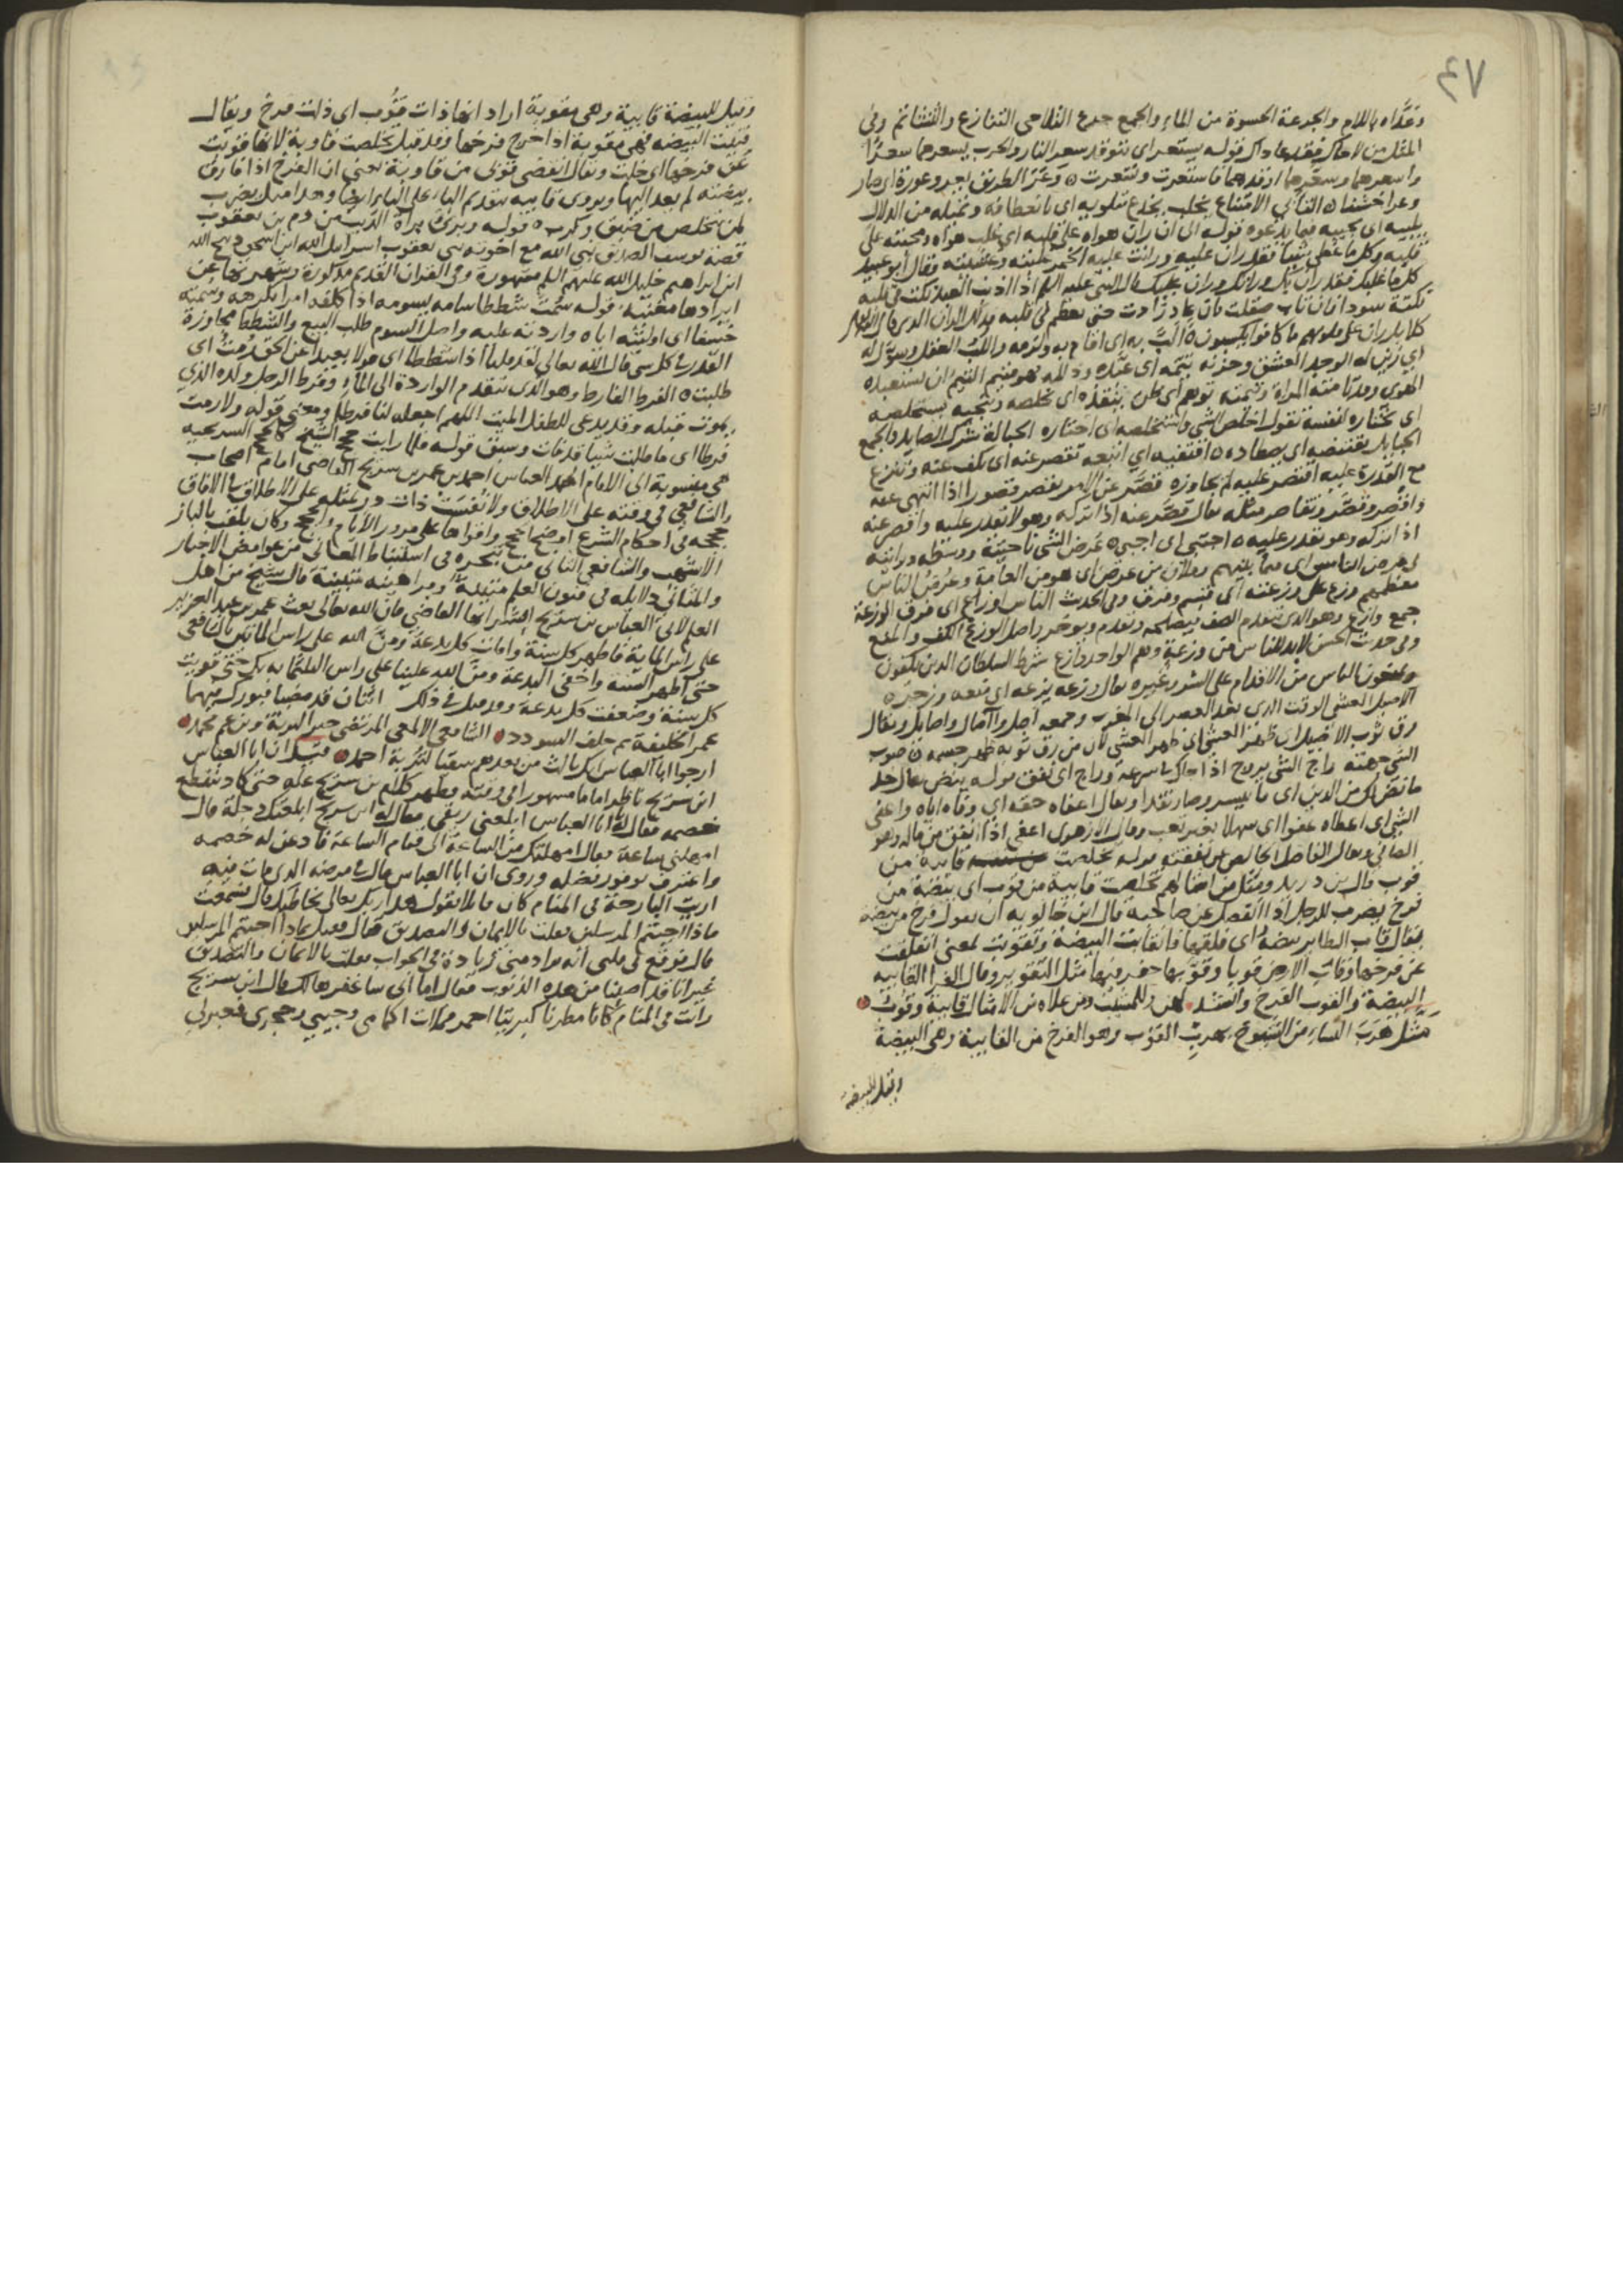 ٤٧
وعداه باللام والجرعة الحسوة من الماء والجمع جرع التلاحى التنازع والتشاتم وفى
المثل من لاحاك فقد عاداك قوله يستعر اى تتوقد سعر النار والحرب يسعرهما سعرا
واسعرهما وسعرهما اوقدهما فاستعرت وتسعرت وعر الطريق يعر وعورة اى صار
وعرا خشنا التأبي الامتناع يخلب يخدع
يلبيه اى يجيبه فيما يدعوه قوله الى ان ران هواه على قلبه اى غلب هواه ومحبته على
قلبه وكل ما غطى شيئا فقد ران عليه ورانت عليه الخمر غلبته وقال أبو عبيد
كل ما غلبك فقد ران بك ورانك وران عليك قال النبي عليه السلم اذا اذنب العبد نكت فى قلبه
نكتة سودا فان تاب صقلت فان عاد زادت حتى تعظم فى قلبه فذلك الران الذى قال الله تعالى
كلا بل ران على قلوبهم ما كانوا يكسبون ألب به اى اقام به ولزمه واللب العقل وسول له
اى زين له الوجد العشق وحزنه تيمه اى عبده وذلله فهو متيم التيم ان يستعبده
الهوى وقد تامته المراة وتيمته توهم اى ظن ينقذه اى يخلصه وينجيه يستخلصه
اى يختاره لنفسه تقول اخلص الشى واستخلصه اى اختاره الحبالة شرك الصايد والجمع
الحبايل يقتنصه اى يصطاده اقتفيه اى اتبعه تقصر عنه اى تكف عنه وتنزع
مع القدرة عليه اقتصر عليه لم يجاوزه قصر عن الامر يقصر قصورا اذا انتهى عنه
واقصر وقصر وتقاصر مثله يقال قصر عنه اذا تركه وهو لا يقدر عليه واقصر عنه
اذا تركه وهو يقدر عليه اجتبى اى اجبى عرض الشى ناحيته ووسطه ورايته
فى عرض الناس اى فيما بينهم وفلان من عرض اى هو من العامة وعرض الناس
معظمهم وزع على وزعته اى قسم وفرق وفى الحديث الناس اوزاع اى فرق الوزعة
جمع وازع وهو الذى يتقدم الصف فيصلحه ويقدم ويوخر واصل الوزع الكف والمنع
وفى حديث الحسن لابد للناس من وزعة وهم الواحد وازع شرط السلطان الذين يكفون
ويمنعون الناس من الاقدام على الشر وغيره يقال وزعه يزعه اى منعه وزجره
الاصيل العشى الوقت الذى بعد العصر الى المغرب وجمعه آصل وآصال واصايل ويقال
رق ثوب الاصيل
الشى جهته راج الشى يروج اذا جاك بسرعة وراج اى نفق قوله ينض يقال خذ
ما نض لك من الدين اى ما تيسر وصار نقدا ويقال اعفاه حقه اى وفاه اياه واعفى
الشى اى اعطاه عفوا اى سهلا بغير تعب وقال الازهرى اعفى اذا انفق من ماله وهو
الصافى ويقال الفاضل الخالص من نفقته قوله تخلصت قايبة من
قوب قال ابن دريد ومثل من امثالهم تخلصت قايبة من قوب اى بيضة من
فرخ يضرب للرجل اذا انفصل عن صاحبه قال ابن خالويه ان يقول فرخ من بيضة
يقال قاب الطاير بيضه اى فلقها فانقابت البيضة وتقوبت بمعنى انفلقت
عن فرخها وقاب الارض قوبا وقوبها حفر فيها مثل التقوير وقال الفرا القايبة
البيضة والقوب الفرخ وانشد لهن وللمشيب ومن علاه من الامثال قايبة وقوب
مثل هرب النساء من الشيوخ بهرب القوب وهو الفرخ من القايبة وهى البيضة
وقيل للبيضة
وقيل للبيضة قايبة وهى مقوبة اراد انها ذات قوب اى ذات فرخ ويقال
قيبت البيضة فهى مقوبة اذا خرج فرخها وقد قيل تخلصت قاوبة لانها قويت
عن فرخها اى خلت ويقال انقضى قوبى من قاوبة يعنى ان الفرخ اذا فارق
بيضته لم يعد اليها ويروى قابية بتقديم الباء على الياء ايضا وهذا مثل يضرب
لمن تخلص من ضيق وكرب قوله وبرئ براة الذئب من دم بن يعقوب
قصة يوسف الصديق نبى الله مع اخوته بنى يعقوب اسرايل الله ابن اسحق ذبيح الله
ابن ابراهيم خليل الله عليهم السلم مشهورة وفى القران القديم مذكورة وشهرتها عن
ايرادها مغنية قوله سمت شططا سامه يسومه اذا كلفه امرا يكرهه وسمته
خسفا اى اوليته اياه واردته عليه واصل السوم طلب البيع والشطط مجاوزة
القدر فى كل شى قال الله تعالى لقد قلنا اذا شططا اى قولا بعيدا عن الحق رمت اى
طلبت الفرط الفارط وهو الذى يتقدم الواردة الى الماء وفرط الرجل ولده الذى
يموت قبله وقد يدعى للطفل الميت اللهم اجعله لنا فرطا ومعنى قوله ولا رمت
فرطا اى ما طلبت شيا قد فات وسبق قوله فلما رايت حجج الشيخ كالحجج السريجية
هى منسوبة الى الامام ابى العباس احمد بن عمر بن سريج القاضى امام اصحاب
الشافعى فى وقته على الاطلاق ولا نفست ذات در بمثله على الاطلاق فى الافاق
حججه فى احكام الشرع اوضح الحجج واقواها على مرور الايام والحجج وكان يلقب بالباز
الاشهب والشافعى الثانى من تبحره فى استنباط المعانى من غوامض الاخبار
والمثانى دلايله فى فنون العلم متينة وبراهينه مبينة قال شيخ من اهل
العلم لابى العباس بن سريج ابشر ايها القاضى فان الله تعالى بعث عمر بن عبد العزيز
على راس الماية فاظهر كل سنة وامات كل بدعة ومن الله على راس الماتين بالشافعى
حتى اظهر السنة واخفى البدعة ومن الله علينا على راس الثلثماية بك حتى قويت
كل سنة وضعفت كل بدعة وقد قيل فى ذلك اثنان قد مضيا فبورك فيهما
عمر الخليفة ثم حلف السودد الشافعى الالمعى المرتضى خير البرية وابن عم محمد
ارجو ابا العباس انك ثالث من بعدهم سقيا لتربة احمد قيل ان ابا العباس
ابن سريج ناظر اماما مشهورا فى وقته فظهر كلام بن سريج عليه حتى كاد ينقطع
خصمه فقال له ابا العباس ابلعنى ريقى فقال له ابن سريج ابلعتك دجلة قال
امهلنى ساعة فقال امهلتك من الساعة الى قيام الساعة فاذعن له خصمه
واعترف بوفور فضله وروى ان ابا العباس قال فى مرضه الذى مات فيه
اريت البارحة فى المنام كان قايلا يقول هذا ربك تعالى يخاطبك قال فسمعت
ماذا اجبتم المرسلين فقلت بالايمان والتصديق فقال فقيل بماذا اجبتم المرسلين
قال فوقع فى قلبى انه يراد منى زيادة فى الجواب فقلت بالايمان والتصديق
غير انا قد اصبنا من هذه الذنوب فقال اما انى ساغفر لك قال ابن سريج
رايت فى المنام كانا مطرنا كبريتا احمر فملات اكمامى وجيبى وحجرى فعبر لى